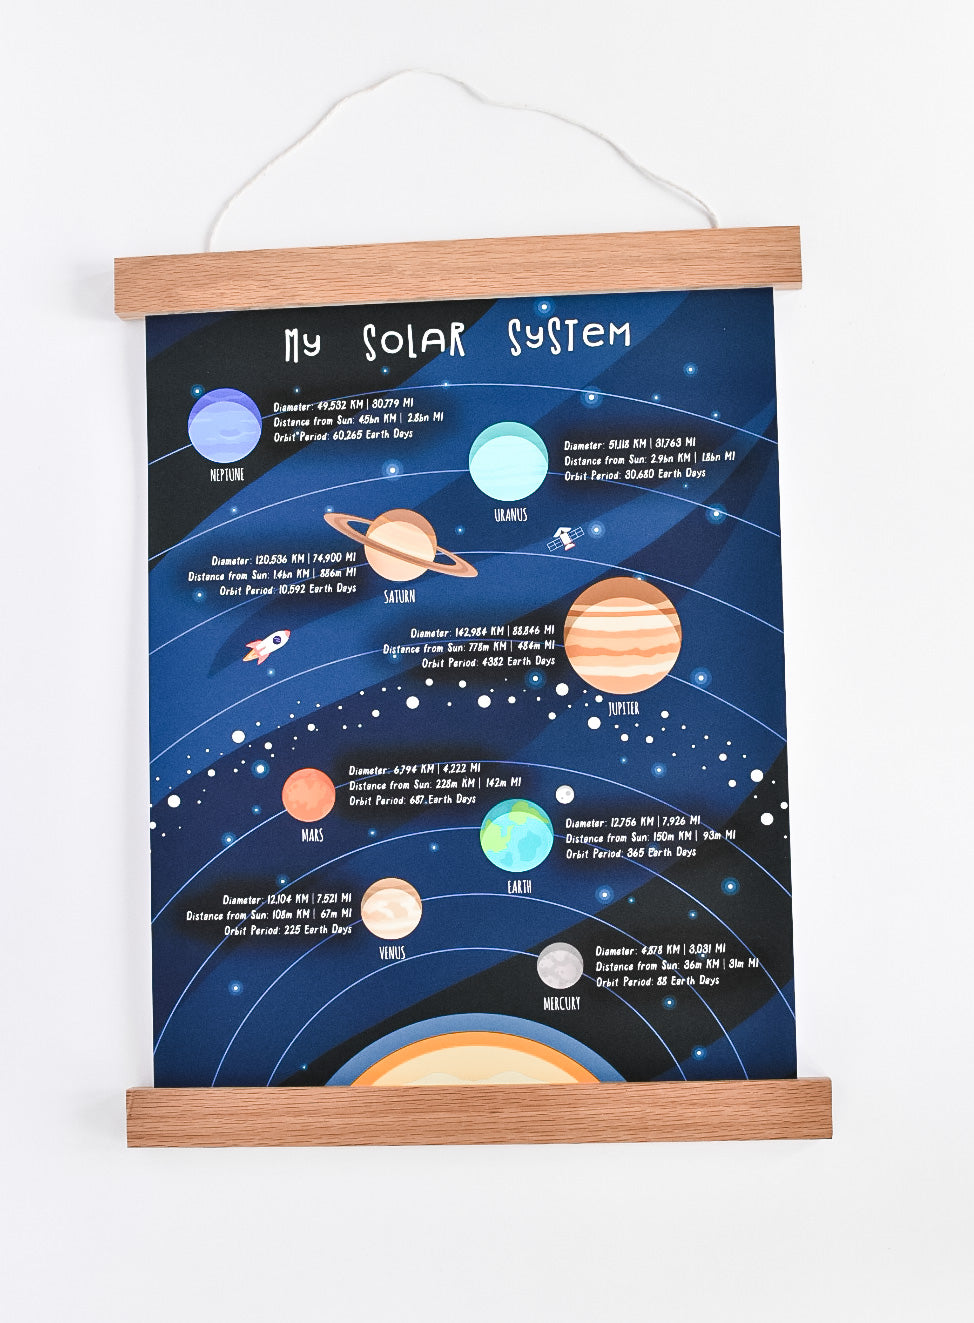 My SOLAR SySTEM
Diameter: 49,532 KM | 30,779 MI
Distance from Sun: 4.5bn KM | 2.8bn MI
Orbit Period: 60,265 Earth Days
NEPTUNE
Diameter: 51,118 KM | 31,763 MI
Distance from Sun: 2.9bn KM | 1.8bn MI
Orbit Period: 30,680 Earth Days
URANUS
Diameter: 120,536 KM | 74,900 MI
Distance from Sun: 1.4bn KM | 886m MI
Orbit Period: 10,592 Earth Days
SATURN
Diameter: 142,984 KM | 88,846 MI
Distance from Sun: 778m KM | 484m MI
Orbit Period: 4382 Earth Days
JUPITER
Diameter: 6,794 KM | 4,222 MI
Distance from Sun: 228m KM | 142m MI
Orbit Period: 687 Earth Days
MARS
Diameter: 12,756 KM | 7,926 MI
Distance from Sun: 150m KM | 93m MI
Orbit Period: 365 Earth Days
EARTH
Diameter: 12,104 KM | 7,521 MI
Distance from Sun: 108m KM | 67m MI
Orbit Period: 225 Earth Days
VENUS
Diameter: 4,878 KM | 3,031 MI
Distance from Sun: 36m KM | 31m MI
Orbit Period: 88 Earth Days
MERCURY